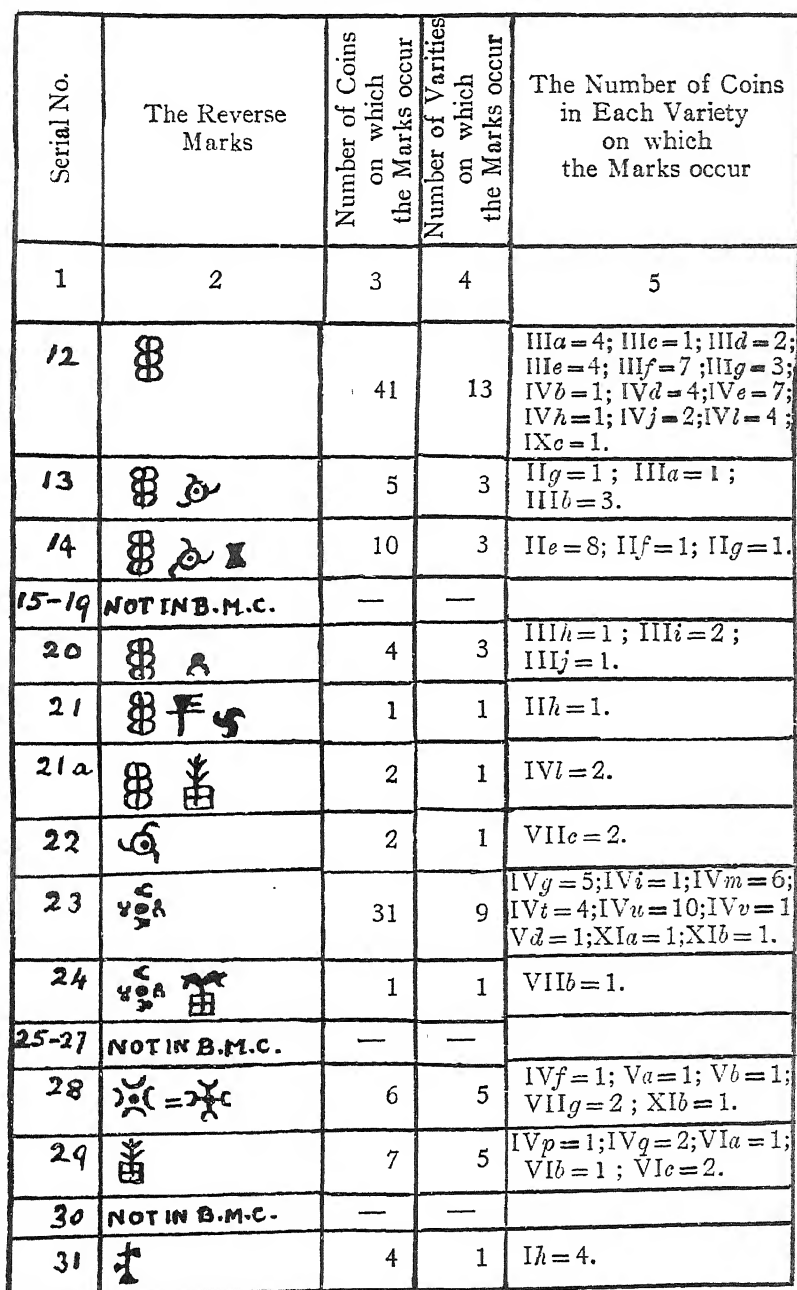 Serial No.
The Reverse
Marks
Number of Coins
on which
the Marks occur
Number of Varities
on which
the Marks occur
The Number of Coins
in Each Variety
on which
the Marks occur
1 2 3 4 5
12 41 13 IIIa=4; IIIc=1; IIId=2;
IIIe=4; IIIf=7 ;IIIg=3;
IVb=1; IVd=4;IVe=7;
IVh=1; IVj=2;IVl=4 ;
IXc=1.
13 5 3 IIg=1 ; IIIa=1 ;
IIIb=3.
14 10 3 IIe=8; IIf=1; IIg=1.
15-19 NOT IN B.M.C. — —
20 4 3 IIIh=1 ; IIIi=2 ;
IIIj=1.
21 1 1 IIh=1.
21a 2 1 IVl=2.
22 2 1 VIIc=2.
23 31 9 IVg=5;IVi=1;IVm=6;
IVt=4;IVu=10;IVv=1
Vd=1;XIa=1;XIb=1.
24 1 1 VIIb=1.
25-27 NOT IN B.M.C. — —
28 = 6 5 IVf=1; Va=1; Vb=1;
VIIg=2 ; XIb=1.
29 7 5 IVp=1;IVq=2;VIa=1;
VIb=1 ; VIc=2.
30 NOT IN B.M.C. — —
31 4 1 Ih=4.